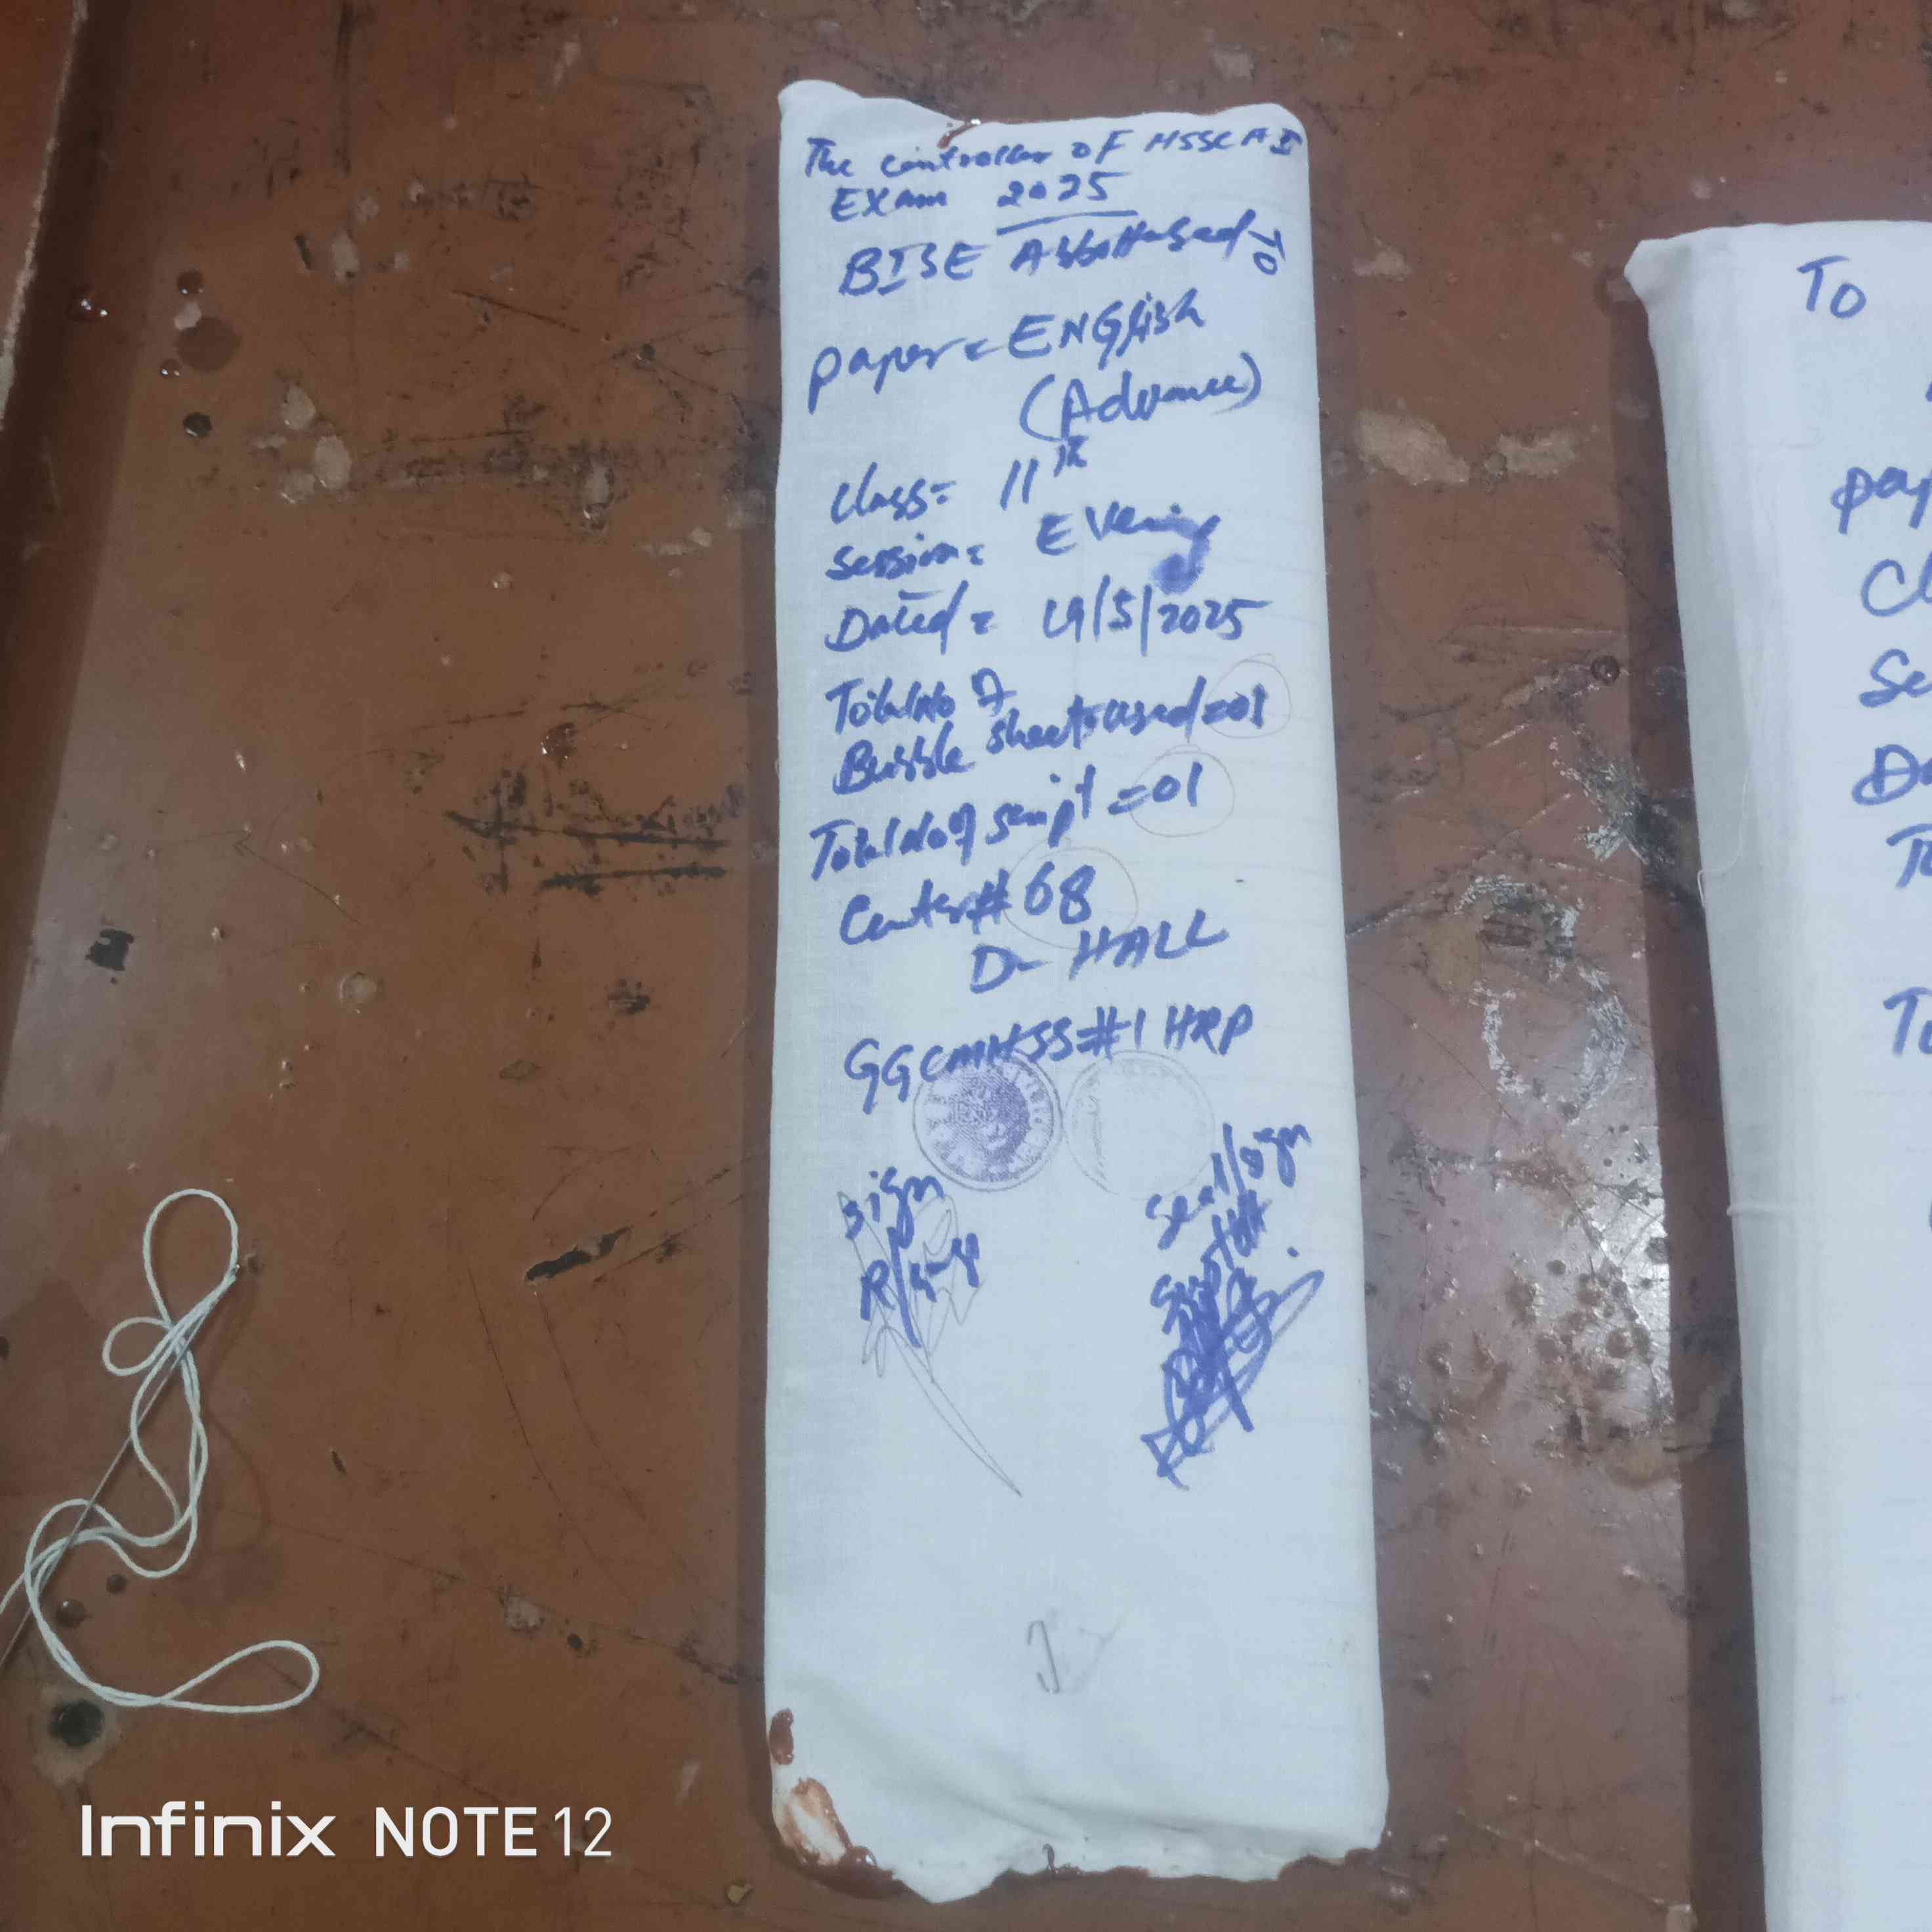 The Controller OF HSSC A I
EXam 2025
BISE Abbottabad
paper = ENGlish
(Advance)
class = 11th
Session = EVening
Dated = 19/5/2025
Total No of
Bubble sheet used = 01
Total No of script = 01
Center # 68
D- HALL
GGCMHSS#1 HRP
sign
R/
Seal/sign
Supdtt
TO
pap
Cl
Se
Da
To
To
Infinix NOTE 12